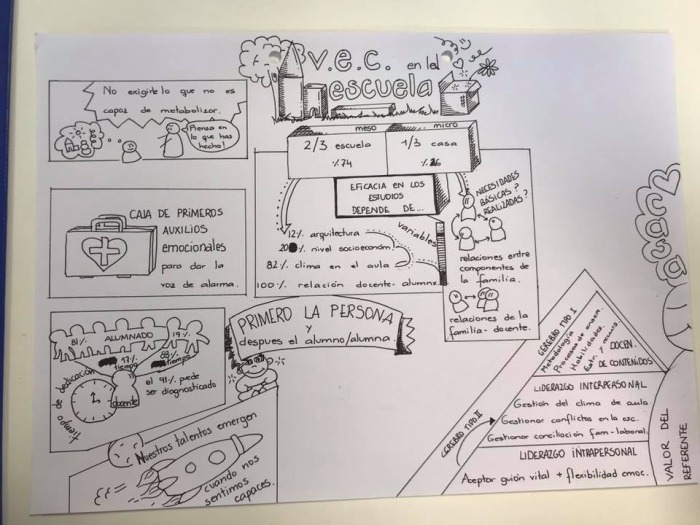 v.e.c. en la
escuela
No exigirle lo que no es
capaz de metabolizar.
Piensa en
lo que has
hecho!
meso
micro
2/3 escuela
1/3 casa
%74
%26
EFICACIA EN LOS
ESTUDIOS
DEPENDE DE...
variables
12% arquitectura
20% nivel socioeconóm.
82% clima en el aula
100% relación docente-alumnx
NECESIDADES
BÁSICAS?
REALIZADAS?
relaciones entre
componentes de
la familia.
relaciones de la
familia-docente.
CAJA DE PRIMEROS
AUXILIOS
emocionales
para dar la
voz de alarma.
81% ALUMNADO 19%
17%
tiempo
88%
tiempo
docente
tiempo de dedicación
el 91% puede
ser diagnosticado
PRIMERO LA PERSONA
y
despues el alumno/alumna.
Nuestros talentos emergen
cuando nos
sentimos
capaces.
casa
CEREBRO TIPO I
Metodología
Procesos de enseñ.
Habilidades
Estr. y recurs.
DOCEN.
DE CONTENIDOS
CEREBRO TIPO II
LIDERAZGO INTERPERSONAL
Gestión del clima de aula
Gestionar conflictos en la esc.
Gestionar conciliación fam-laboral.
LIDERAZGO INTRAPERSONAL
Aceptar guión vital + flexibilidad emoc.
VALOR DEL
REFERENTE